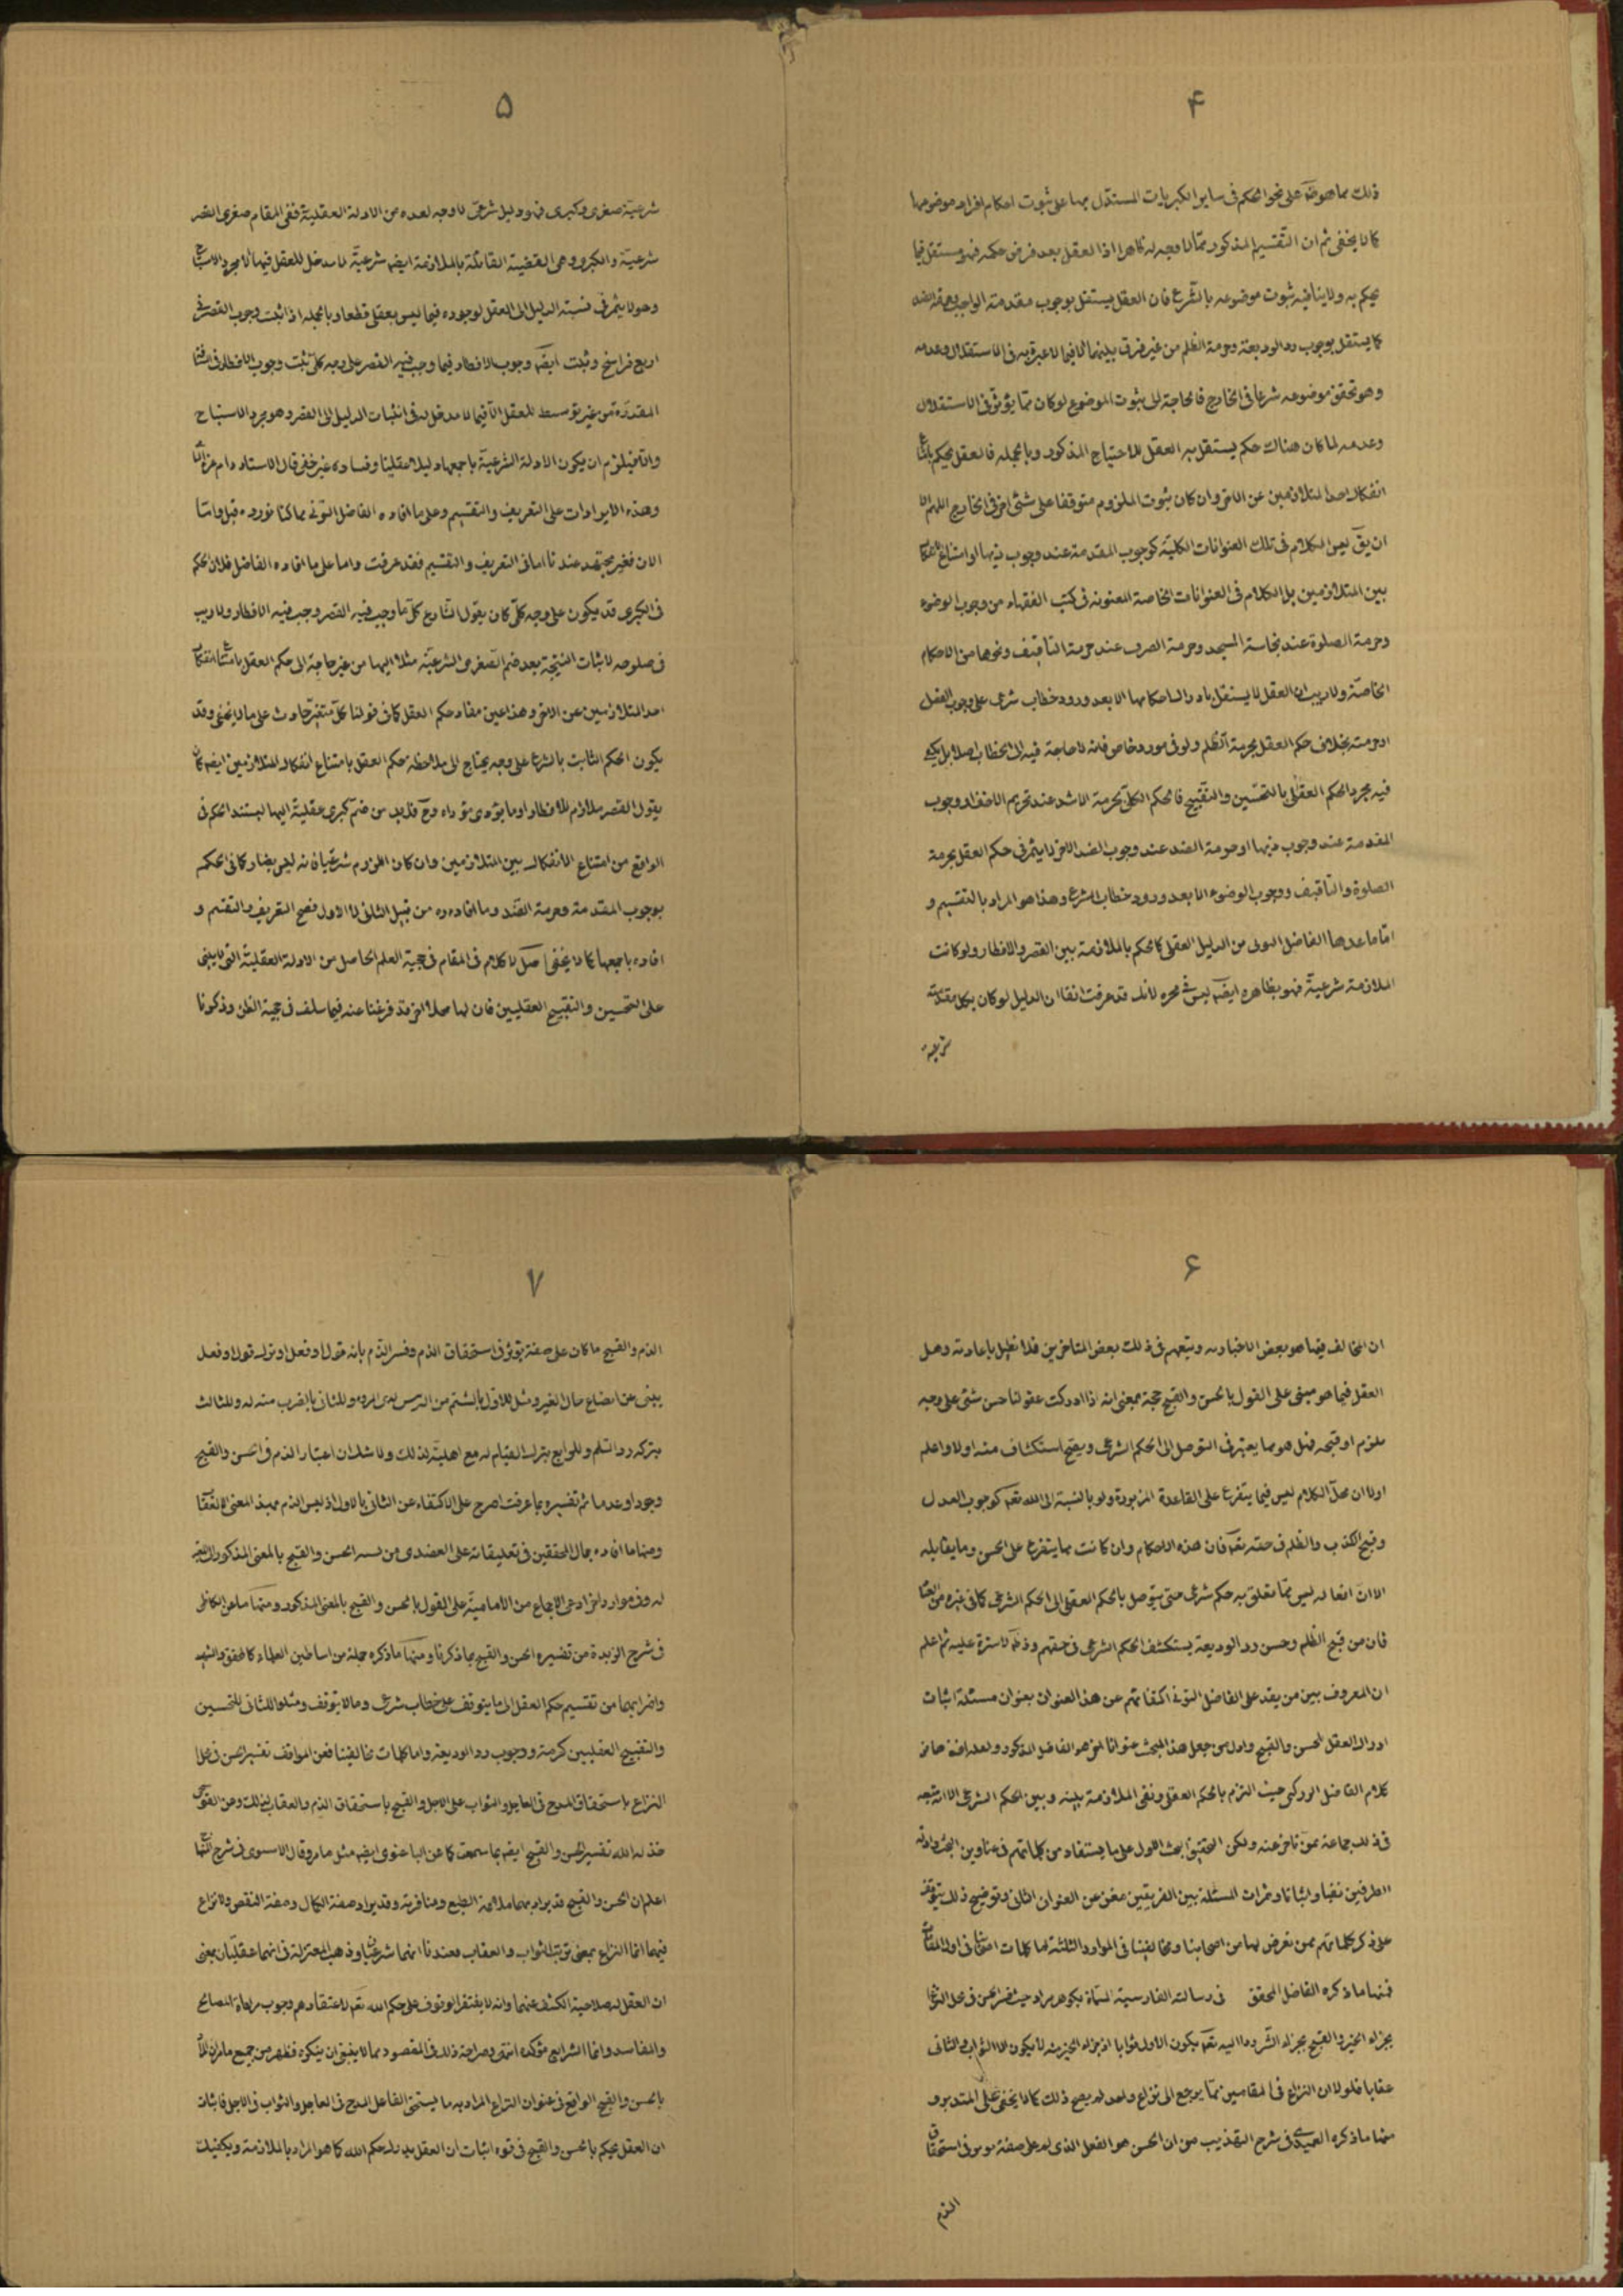 ۴
ذلك مما هو على نحو الحكم فى ساير الكبريات المستدل بها على ثبوت احكام افراد موضوعها
كما لا يخفى ثم ان التقسيم المذكور ممّا لا وجه له ظاهرا اذ العقل بعد فرض حكمه فهو مستقل فيما
يحكم به ولا ينافيه ثبوت موضوعه بالشرع فان العقل يستقل بوجوب مقدمة الواجب وحرمة الضد
كما يستقل بوجوب رد الوديعة وحرمة الظلم من غير فرق بينهما الا فيما لا عبرة به فى الاستقلال وعدمه
وهو تحقق موضوعه شرعا فى الخارج فالحاجة الى ثبوت الموضوع لو كان ممّا يؤثر فى الاستقلال
وعدمه لما كان هناك حكم يستقل به العقل للاحتياج المذكور وبالجملة فالعقل يحكم بامتناع
انفكاك احد المتلازمين عن الاخر وان كان ثبوت الملزوم متوقفا على شئ اخر فى الخارج اللهم الا
ان يقّ ليس الكلام فى تلك العنوانات الكلية كوجوب المقدمة عند وجوب ذيها او امتناع الانفكاك
بين المتلازمين بل الكلام فى العنوانات الخاصة المعنونة فى كتب الفقهاء من وجوب الوضوء
وحرمة الصلوة عند نجاسة المسجد وحرمة الصرف عند حرمة التأفيف ونحوها من الاحكام
الخاصّة ولا ريب ان العقل لا يستقل بادراك احكامها الا بعد ورود خطاب شرعى على وجوب الفعل
او حرمته بخلاف حكم العقل بحرمة الظلم ولو فى مورد خاص فانه لا حاجة فيه الى الخطاب اصلا بل يكفى
فيه مجرد الحكم العقلى بالتحسين والتقبيح فالحكم الكلى بحرمة الاشد عند تحريم الاخف او وجوب
المقدمة عند وجوب ذيها او حرمة الضد عند وجوب الضد الاخر لا يثمر فى حكم العقل بحرمة
الصلوة والتأفيف ووجوب الوضوء الا بعد ورود خطاب الشرع وهذا هو المراد بالتقسيم و
امّا ما عدها الفاضل التونى من الدليل العقلى كالحكم بالملازمة بين القصر والافطار ولو كانت
الملازمة شرعية فهو بظاهره ايضا ليس فى محره لانك قد عرفت انفا ان الدليل لو كان بكلا مقدمتيه
شرعية
۵
شرعية صغرى وكبرى فهو دليل شرعى لا وجه لعده من الادلة العقلية ففى المقام صغرى القصر
شرعيّة والكبرى وهى القضية القائلة بالملازمة ايضا شرعيّة لا مدخل للعقل فيها الا مجرد الاستنتاج
وهو لا يثمر فى نسبة الدليل الى العقل لوجوده فيما ليس بعقلى قطعا وبالجملة اذا ثبت وجوب القصر فى
اربع فراسخ وثبت ايضا وجوب الافطار فيما وجب فيه القصر على وجه كلّى ثبت وجوب الافطار فى المسافة
المقدرة من غير توسيط للعقل الا فيما لا مدخل له فى انتساب الدليل الى العقل وهو مجرد الاستنتاج
والا فيلزم ان يكون الادلة الشرعيّة باجمعها دليلا عقليا وفساده غير خفى قال الاستاد دام
وهذه الايرادات على التعريف والتقسيم وعلى ما افاده الفاضل التونى مما كنا نورده قبل واما
الان فغير متجهة عندنا اما فى التعريف والتقسيم فقد عرفت واما على ما افاده الفاضل فلان الحكم
فى الكبرى قد يكون على وجه كلّى كأن يقول الشارع كل ما وجب فيه القصر وجب فيه الافطار ولا ريب
فى صلوحه لاثبات النتيجة بعد ضم الصغرى الشرعيّة مثلا اليها من غير حاجة الى حكم العقل بامتناع انفكاك
احد المتلازمين عن الاخر وهذا عين مفاد حكم العقل كما فى قولنا كلّ متغيّر حادث على ما لا يخفى وقد
يكون الحكم الثابت بالشرع على وجه يحتاج الى ملاحظة حكم العقل بامتناع انفكاك المتلازمين ايضا كأن
يقول القصر ملازم للافطار او ما يؤدى مؤداه وحّ فلا بد من ضم كبرى عقليّة اليها ليستند الحكم فى
الواقع من امتناع الانفكاك بين المتلازمين وان كان الملزوم شرعيا فانه ليس بضار كما فى الحكم
بوجوب المقدمة وحرمة الضد وما افاده من قبيل الثانى لا الاول فصح التعريف والتقسيم و
افاده باجمعها كما لا يخفى اصل لا كلام فى المقام فى حجية العلم الحاصل من الادلة العقلية التى لا يبتنى
على التحسين والتقبيح العقليين فان لها محلا اخر قد فرغنا عنه فيما سلف فى حجية الظن وذكرنا
۶
ان المخالف فيها هو بعض الاخبارية وتبعهم فى ذلك بعض المتاخرين فلا نطيل باعادته وهل
العقل فيما هو مبنى على القول بالحسن والقبح حجة بمعنى انه اذا ادركت عقولنا حسن شئ على وجه
ملزم او قبحه فهل هو مما يعتبر فى التوصل الى الحكم الشرعى ويصح استكشافه منه اولا واعلم
اولا ان محلّ الكلام ليس فيما يتفرع على القاعدة المزبورة ولو بالنسبة الى الله تعم كوجوب العدل
وقبح الكذب والظلم فى حقه تعم فان هذه الاحكام وان كانت مما يتفرع على الحسن وما يقابله
الا ان افعاله ليس ممّا تعلق به حكم شرعى حتى يتوصل بالحكم العقلى الى الحكم الشرعى كما فى غيره من العباد
فان من قبح الظلم وحسن رد الوديعة يستكشف الحكم الشرعى فى حقهم وذلك لا سترة عليه ثم اعلم
ان المعروف بين من تقدم على الفاضل التونى اكتفائهم عن هذا العنوان بعنوان مسئلة اثبات
ادراك العقل الحسن والقبح واول من جعل هذا المبحث عنوانا اخر هو الفاضل المذكور ولعله اخذه من
كلام الفاضل الزركشى حيث التزم بالحكم العقلى ونفى الملازمة بينه وبين الحكم الشرعى الا انه تبعه
فى ذلك جماعة ممن تاخر عنه ولكن التحقيق بحث الاول على ما يستفاد من كلماتهم فى عناوين البحث وادلة
الطرفين نفيا واثباتا وثمرات المسئلة بين الفريقين مغن عن العنوان الثانى وتوضيح ذلك يتوقف
على ذكر كلماتهم ممن تعرض لها من اصحابنا ومخالفينا فى الموارد الثلثة اما كلمات اصحابنا فى
فمنها ما ذكره الفاضل المحقق فى رسالته الفارسية المسماة بگوهر مراد حيث فسر الحسن فى محل النزاع
بجزاء الخير والقبح بجزاء الشر وما اليه تعم يكون الاول ثوابا اذ جزاء الخير منه لا يكون الا الثواب والثانى
عقابا فلولا ان النزاع فى المقامين ممّا يرجع الى نزاع واحد لم يصح ذلك كما لا يخفى على المتدبر و
منها ما ذكره العميدى فى شرح التهذيب من ان الحسن هو الفعل الذى له على صفة تؤثر فى استحقاق
الذم
۷
الذم والقبيح ما كان على صفة يؤثر فى استحقاق الذم وفسر الذم بانه قول او فعل او ترك قول او فعل
ينبئ عن اتضاع حال الغير ومثل للاول بالشتم من وللثانى بالضرب منه له وللثالث
بتركه رد السلم وللرابع بترك القيام له مع اهليته لذلك ولا شك ان اعتبار الذم فى الحسن والقبح
وجودا وعدما ثم تفسيره بما عرفت اصرح على الاكتفاء عن الثانى بالاول اذ ليس الذم بهذا المعنى الا العقاب
ومنها ما افاده جمال المحققين فى تعليقاته على العضدى من الحسن والقبح بالمعنى المذكور الى
له وفى موارد اخر ادعى الاجماع من الامامية على القول بالحسن والقبح بالمعنى المذكور ومنها ما عن الكاظمى
فى شرح الزبدة من تفسيره الحسن والقبح بما ذكرنا ومنها ما ذكره جملة من اساطين العلماء كالمحقق والشهيد
واضرابهما من تقسيم حكم العقل الى ما يتوقف على خطاب شرعى وما لا يتوقف ومثلوا للثانى للتحسين
والتقبيح العقليين كحرمة ووجوب رد الوديعة واما كلمات مخالفينا فعن المواقف تفسير الحسن فى محل
النزاع باستحقاق المدح فى العاجل والثواب على الاجل والقبح باستحقاق الذم والعقاب كذلك وعن القوشجى
خذله الله تفسير الحسن والقبح ايضا بما سمعت كما عن الباغنوى ايضا مثل ما مر وقال الاسنوى فى شرح المنهاج
اعلم ان الحسن والقبح قد يراد بهما ملائمة الطبع ومنافرته وقد يراد صفة الكمال وصفة النقص ولا نزاع
فيهما انما النزاع بمعنى ترتب الثواب والعقاب فعندنا انهما شرعيان وذهب المعتزلة فى انهما عقليّان بمعنى
ان العقل له صلاحية الكشف عنهما وانه لا يفتقر الوقوف على حكم الله تعم لاعتقادهم وجوب رعاية المصالح
والمفاسد وانما الشرايع مؤكدة انتهى وصراحة ذلك فى المقصود مما لا ينبغى ان ينكره فظهر من جميع ما مر ان المراد
بالحسن والقبح الواقع فى عنوان النزاع المراد به ما يستحق الفاعل المدح فى العاجل والثواب فى الاجل فاثبات
ان العقل يحكم بالحسن والقبح فى قوه اثبات ان العقل يدرك حكم الله كما هو المراد بالملازمة ويكفيك